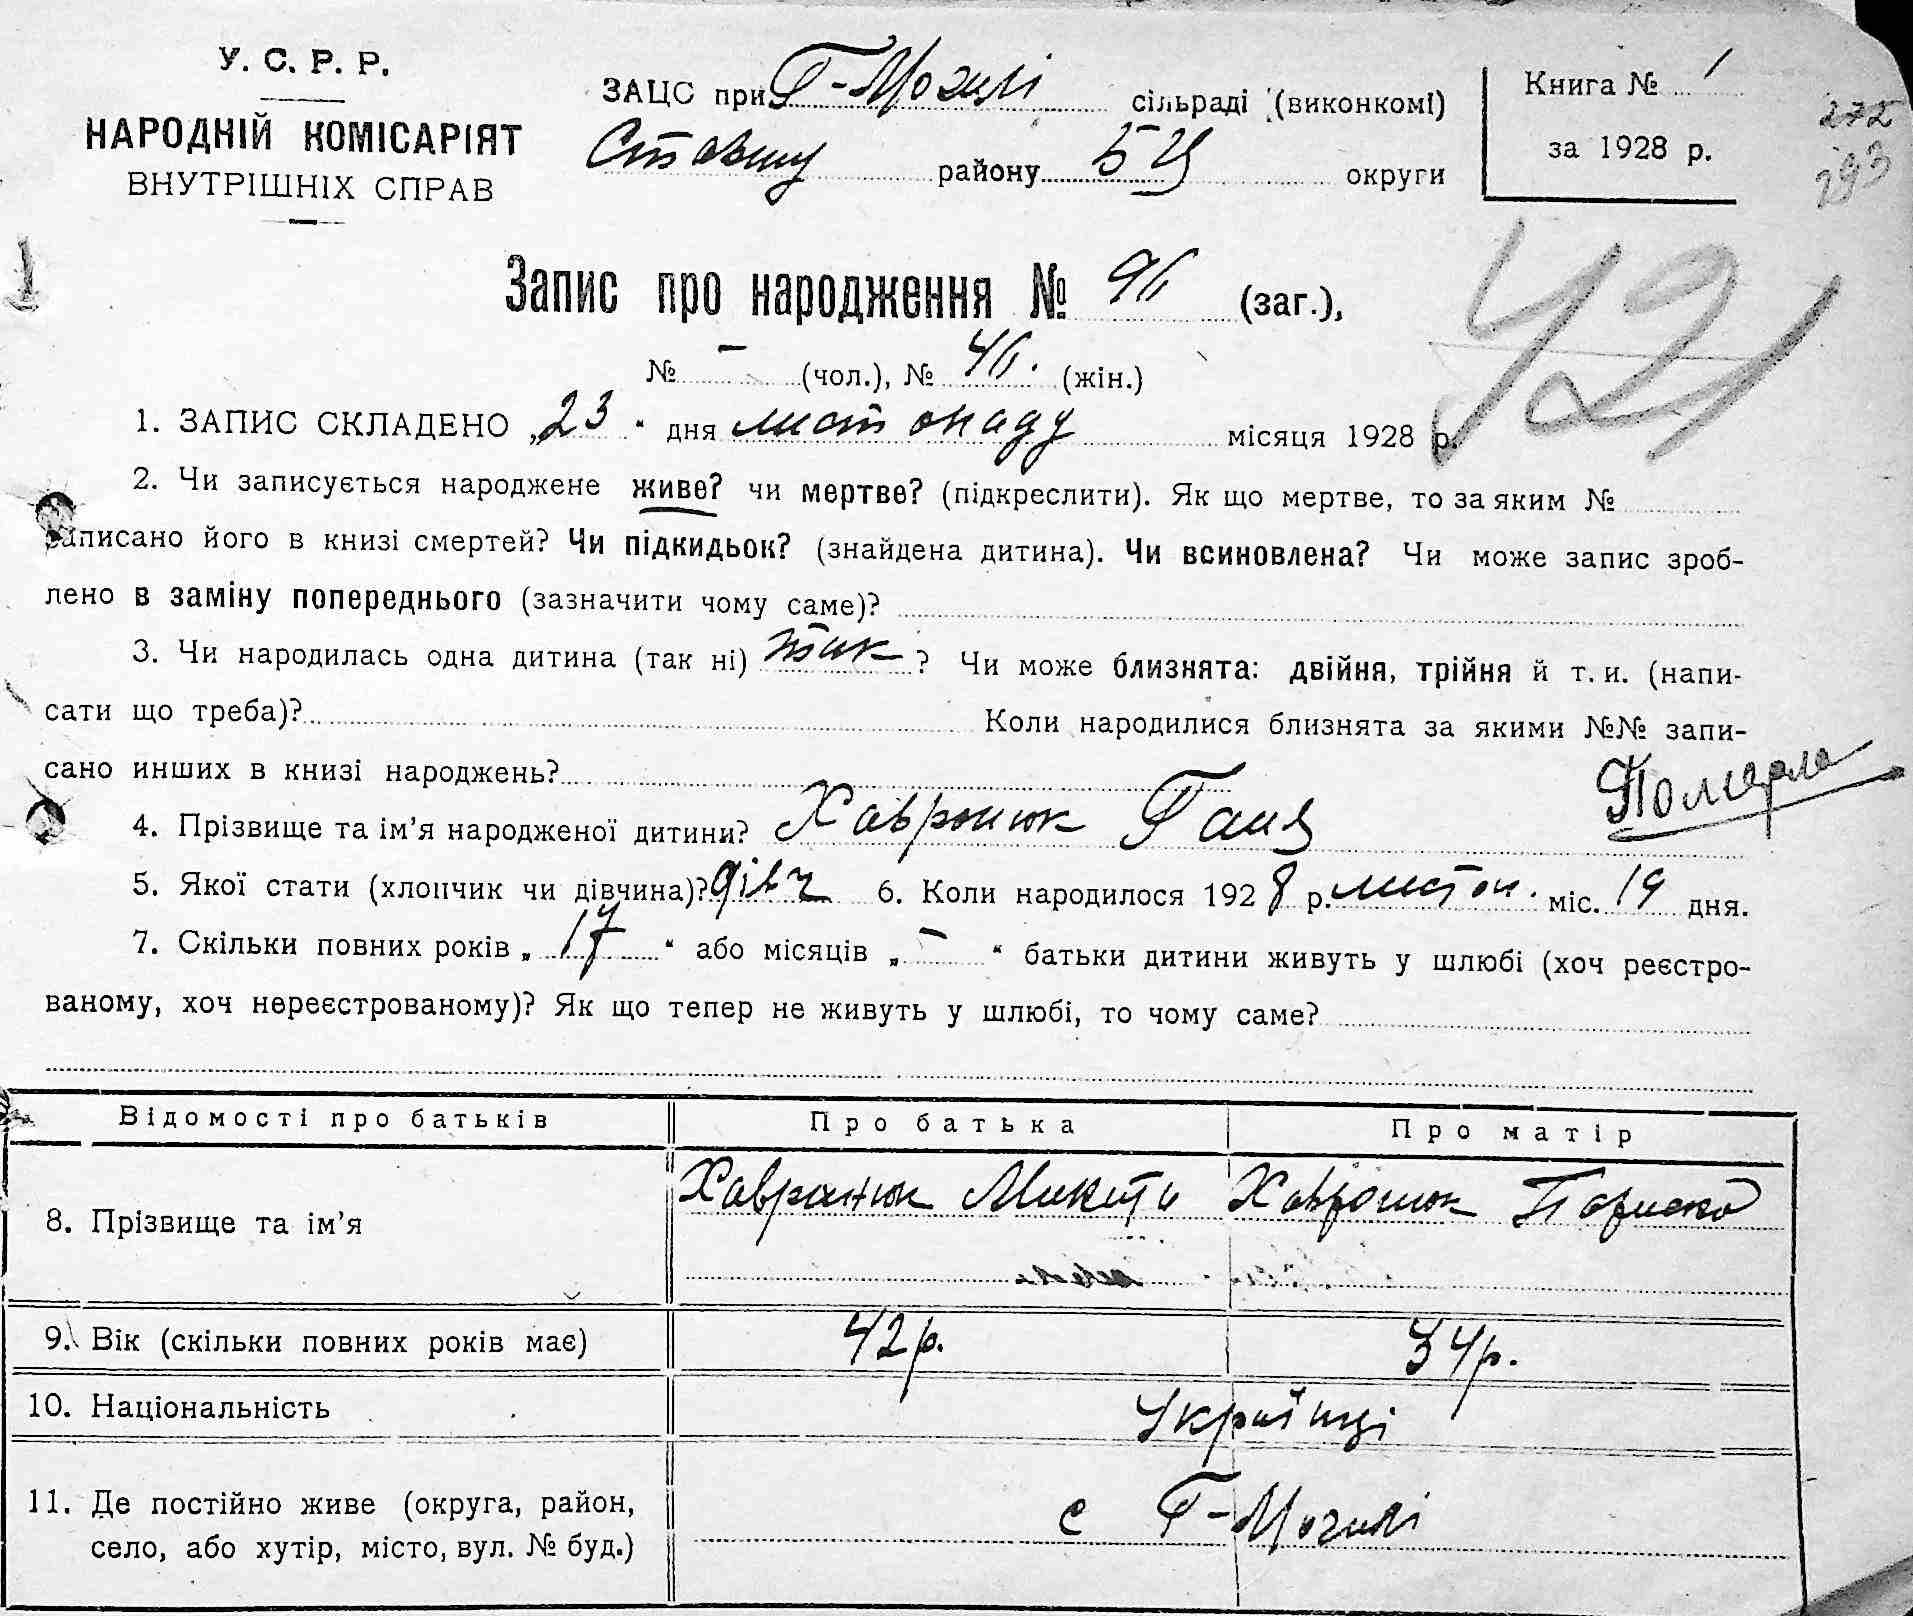 У. С. Р. Р.
НАРОДНІЙ КОМІСАРІЯТ
ВНУТРІШНІХ СПРАВ
ЗАЦС при Г-Могилі сільраді (виконкомі)
Ставищ району БЦ округи
Книга № 1
за 1928 р.
272
293
421
Запис про народження № 96 (заг.),
№ – (чол.), № 46. (жін.)
1. ЗАПИС СКЛАДЕНО „23“ дня листопаду місяця 1928 р.
2. Чи записується народжене живе? чи мертве? (підкреслити). Як що мертве, то за яким №
записано його в книзі смертей? Чи підкидьок? (знайдена дитина). Чи всиновлена? Чи може запис зроб-
лено в заміну попереднього (зазначити чому саме)?
3. Чи народилась одна дитина (так ні) так? Чи може близнята: двійня, трійня й т. и. (напи-
сати що треба)? Коли народилися близнята за якими №№ запи-
сано инших в книзі народжень?
Померла
4. Прізвище та ім’я народженої дитини? Хавронюк Ганя
5. Якої стати (хлопчик чи дівчина)? дівч 6. Коли народилося 1928 р. листоп. міс. 19 дня.
7. Скільки повних років „17“ або місяців „–“ батьки дитини живуть у шлюбі (хоч реєстро-
ваному, хоч нереєстрованому)? Як що тепер не живуть у шлюбі, то чому саме?
Відомості про батьків Про батька Про матір
8. Прізвище та ім’я Хавронюк Микита Хавронюк Параска
9. Вік (скільки повних років має) 42р. 34р.
10. Національність Українці
11. Де постійно живе (округа, район,
село, або хутір, місто, вул. № буд.) с Г-Могилі